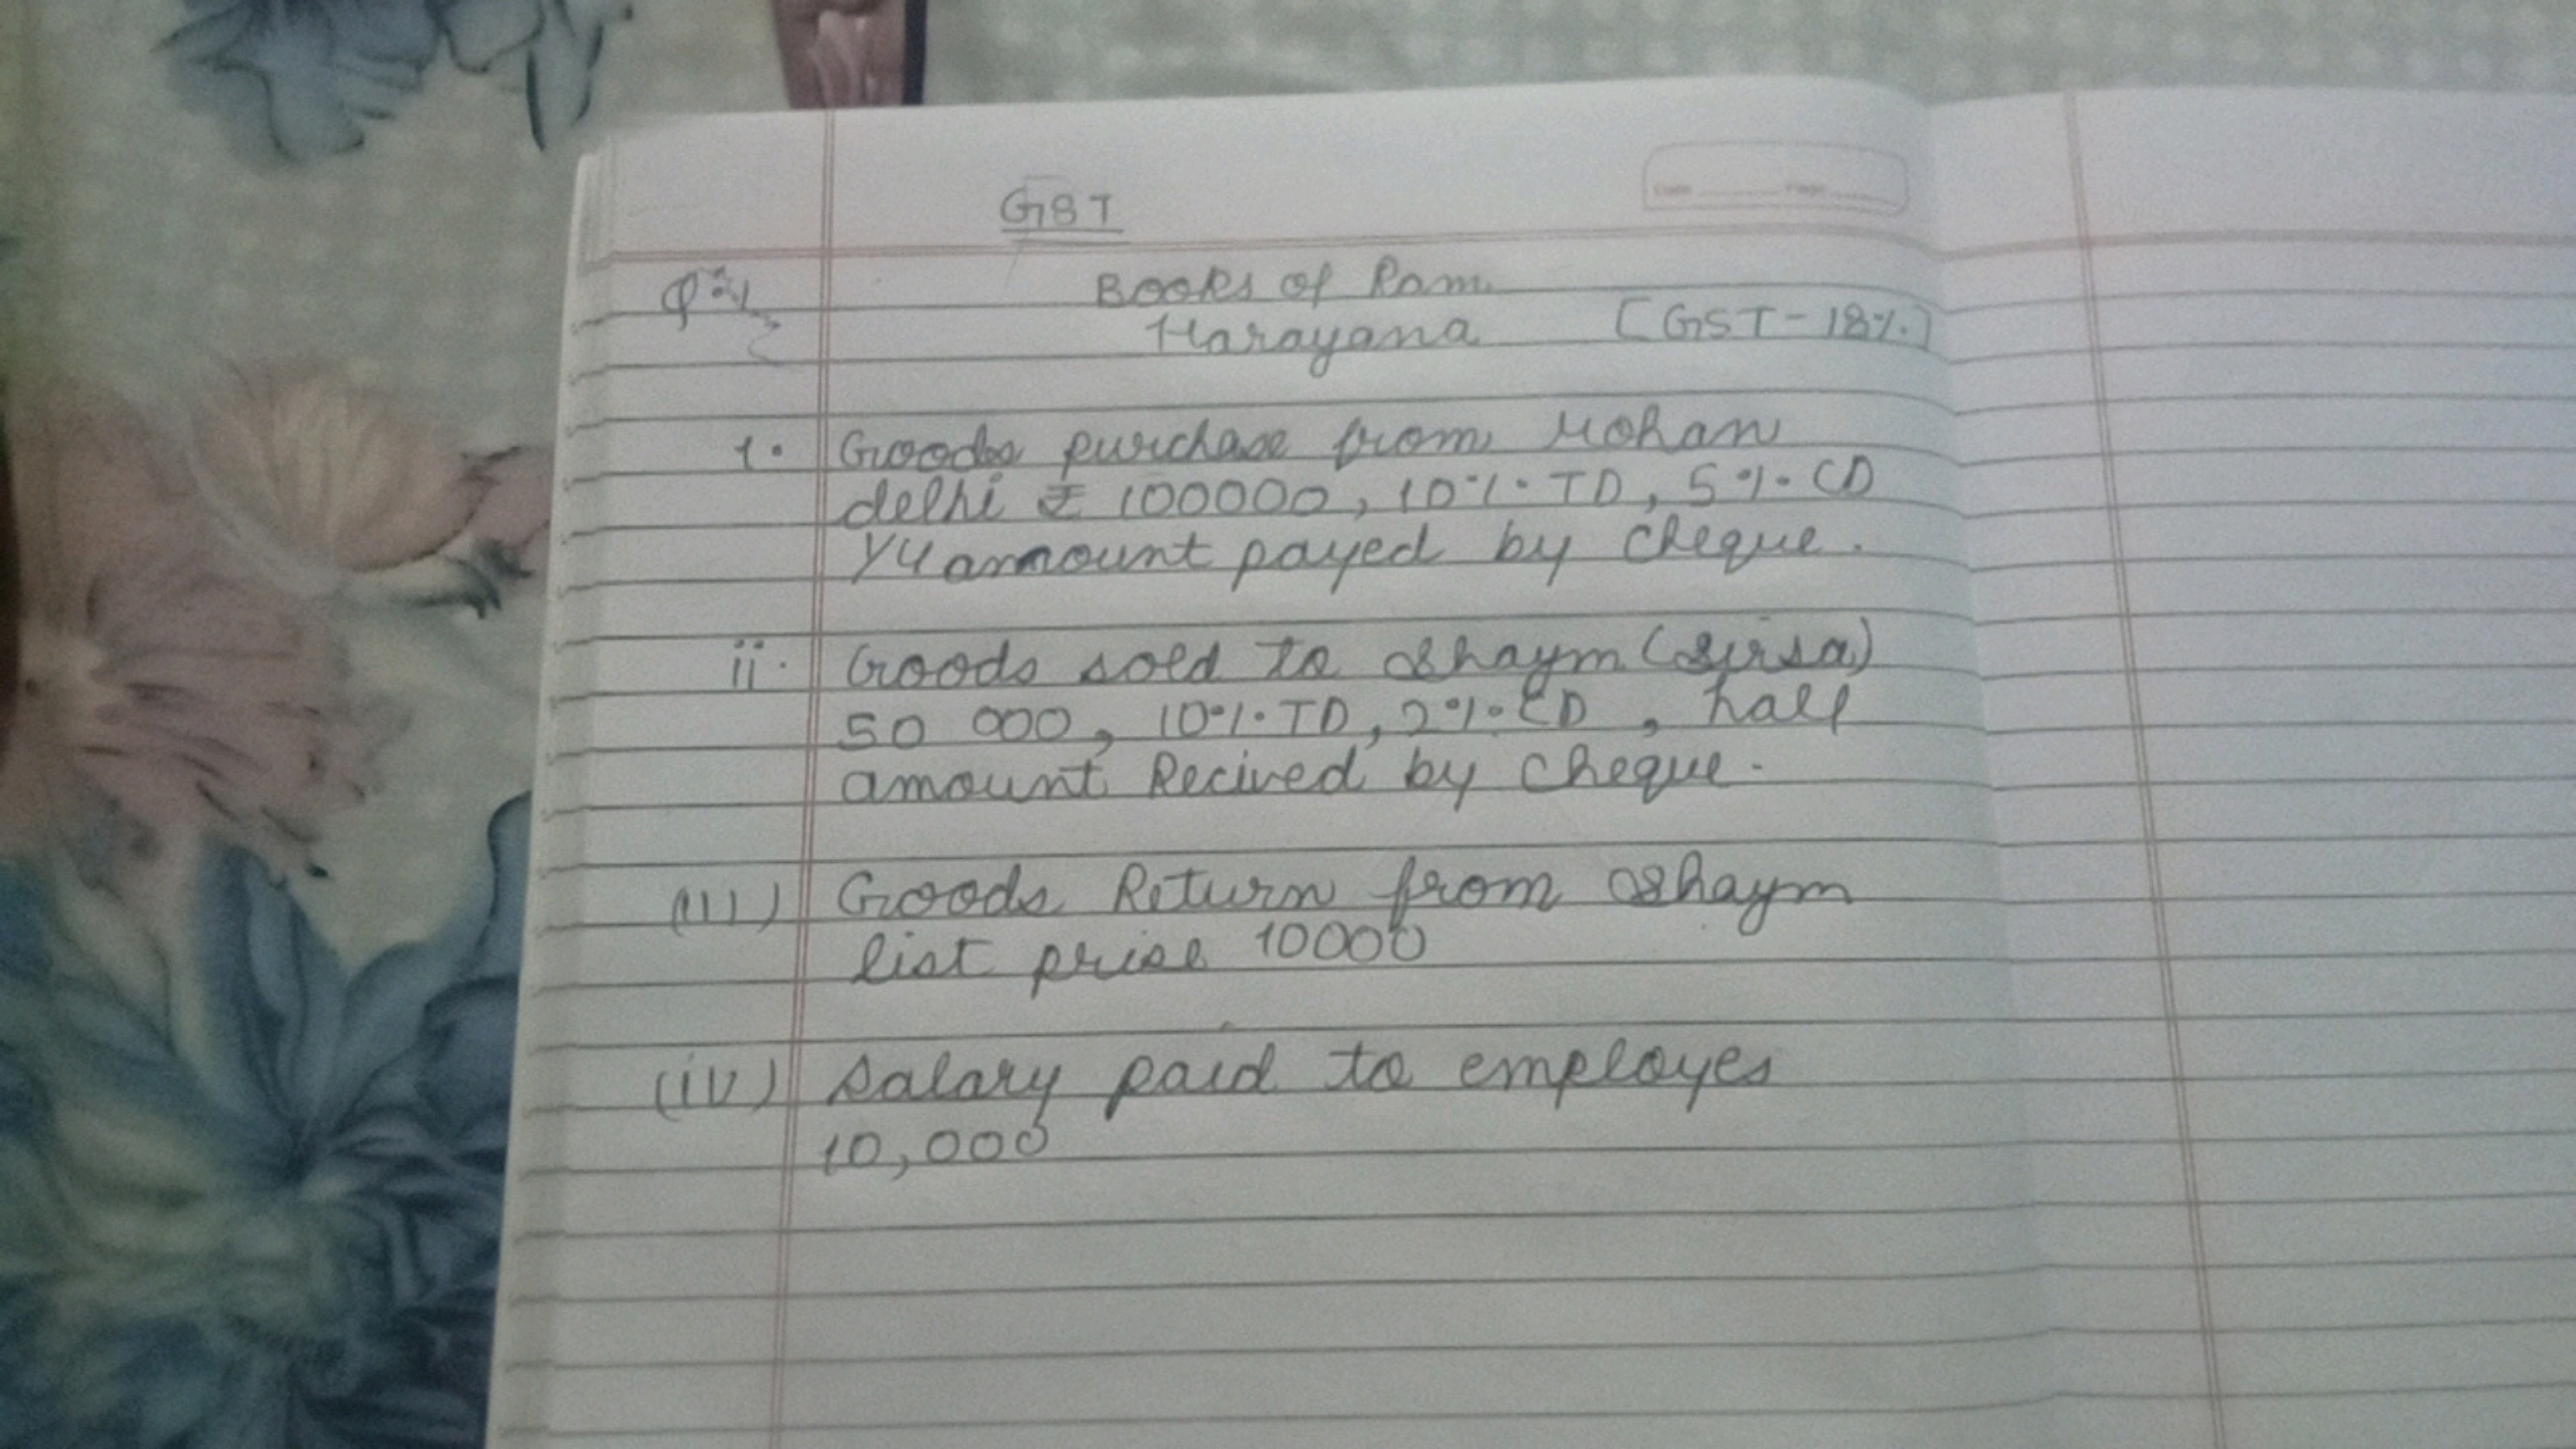 GST
Q:1 Books of Ram
Harayana [GST-18%]
1. Goods purchase from Mohan
delhi ₹ 100000, 10% TD, 5% CD
1/4 amount payed by cheque.
ii. Goods sold to Shaym (Sirsa)
50 000, 10% TD, 2% CD, half
amount Recived by cheque.
(iii) Goods Return from Shaym
list prise 10000
(iv) Salary paid to employes
10,000